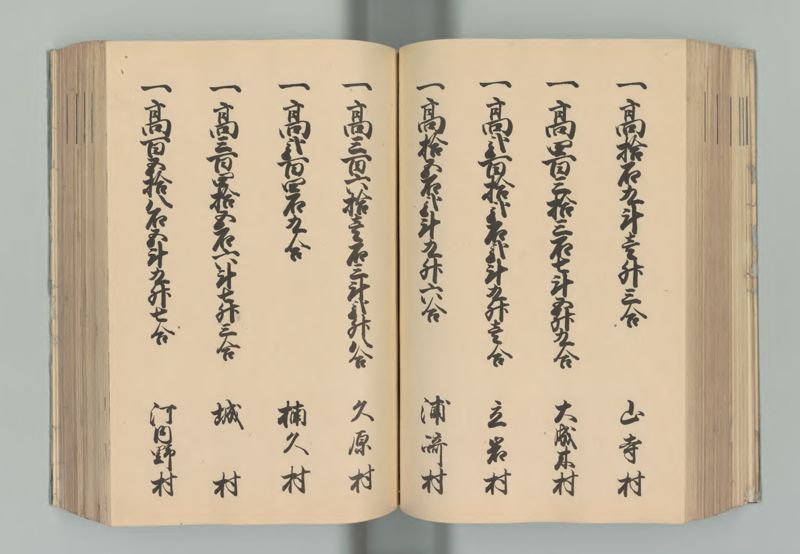 一高拾石九斗壱升三合 山寺村
一高四百三拾三石七斗五升九合 大成木村
一高弐百拾弐石弐斗九升壱合 立岩村
一高拾五石弐斗九升六合 浦崎村
一高三百六拾壱石三斗弐升八合 久原村
一高弐百四石九合 楠久村
一高三百四拾五石六斗七升三合 城村
一高百五拾八石五斗九升七合 河内野村